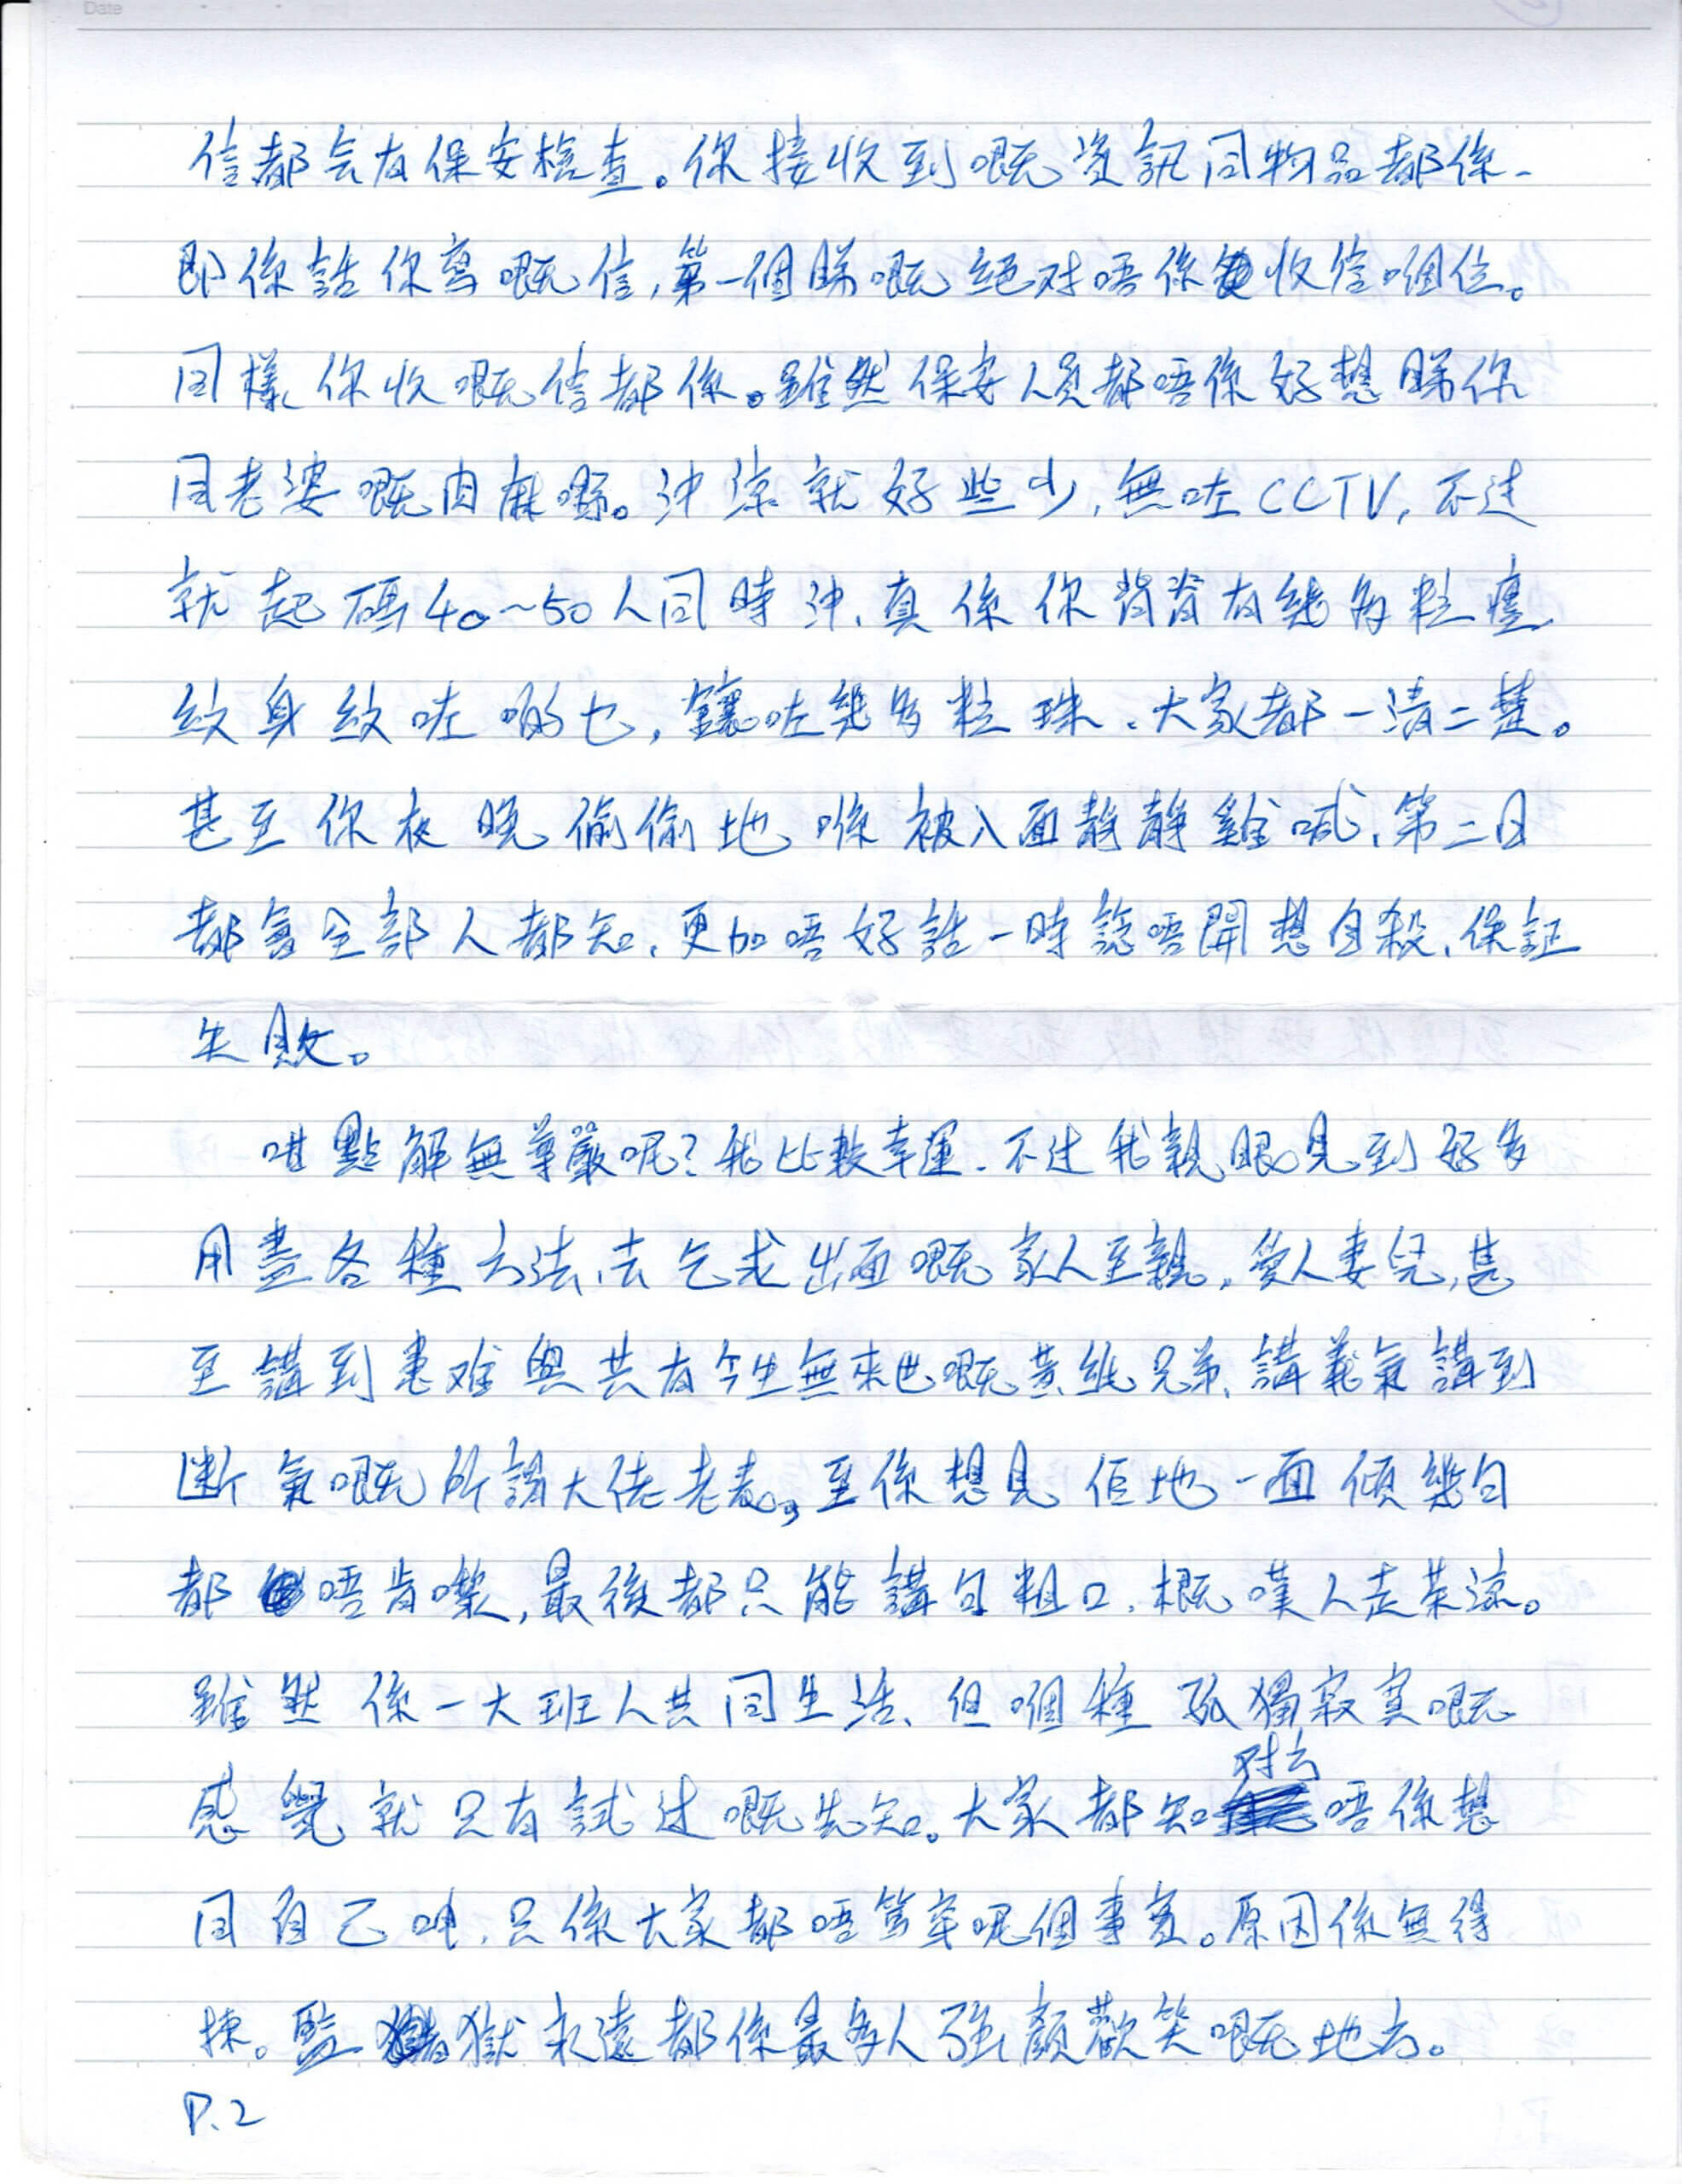 Date
信都会有保安檢查。你接收到嘅資訊同物品都係-
即係話你寫嘅信,第一個睇嘅絕对唔係收信嗰位。
同樣你收嘅信都係。雖然保安人員都唔係好想睇你
同老婆嘅肉麻嘢。沖涼就好些少,無咗CCTV,不过
就起碼40~50人同時沖、真係你背脊有幾多粒痣
紋身紋咗啲乜,鑲咗幾多粒珠、大家都一清二楚。
甚至你夜晚偷偷地喺被入面靜靜雞喊、第二日
都會全部人都知、更加唔好話一時諗唔開想自殺、保証
失敗。
咁點解無尊嚴呢?我比較幸運、不过我親眼見到好多
用盡各種方法、去乞求出面嘅家人至親,愛人妻兒,甚
至講到患难與共有今生無來世嘅黃紙兄弟、講義氣講到
断氣嘅所謂大佬老表。至係想見佢地一面傾幾句
都唔肯嚟,最後都只能講句粗口、概嘆人走茶涼。
雖然係一大班人共同生活、但嗰種孤獨寂寞嘅
感覺就只有試过嘅先知。大家都知対方唔係想
同自己吔、只係大家都唔篤穿呢個事實。原因係無得
揀。監獄永遠都係最多人強顏歡笑嘅地方。
P.2